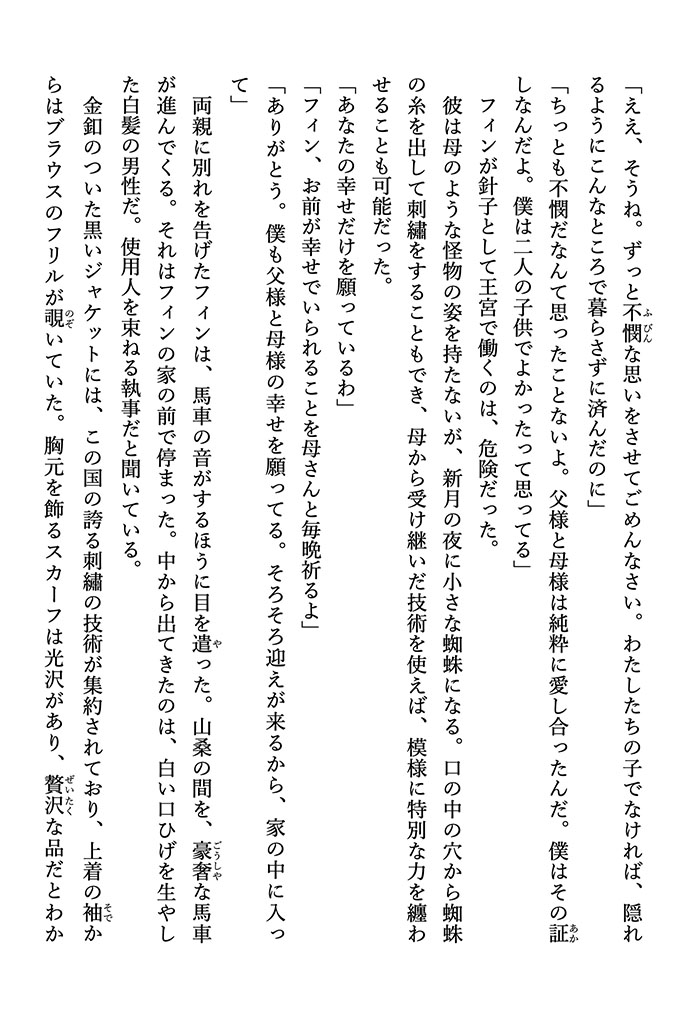 「ええ、そうね。ずっと不憫な思いをさせてごめんなさい。わたしたちの子でなければ、隠れ
るようにこんなところで暮らさずに済んだのに」
「ちっとも不憫だなんて思ったことないよ。父様と母様は純粋に愛し合ったんだ。僕はその証
しなんだよ。僕は二人の子供でよかったって思ってる」
　フィンが針子として王宮で働くのは、危険だった。
　彼は母のような怪物の姿を持たないが、新月の夜に小さな蜘蛛になる。口の中の穴から蜘蛛
の糸を出して刺繡をすることもでき、母から受け継いだ技術を使えば、模様に特別な力を纏わ
せることも可能だった。
「あなたの幸せだけを願っているわ」
「フィン、お前が幸せでいられることを母さんと毎晩祈るよ」
「ありがとう。僕も父様と母様の幸せを願ってる。そろそろ迎えが来るから、家の中に入っ
て」
　両親に別れを告げたフィンは、馬車の音がするほうに目を遣った。山桑の間を、豪奢な馬車
が進んでくる。それはフィンの家の前で停まった。中から出てきたのは、白い口ひげを生やし
た白髪の男性だ。使用人を束ねる執事だと聞いている。
　金釦のついた黒いジャケットには、この国の誇る刺繡の技術が集約されており、上着の袖か
らはブラウスのフリルが覗いていた。胸元を飾るスカーフは光沢があり、贅沢な品だとわか